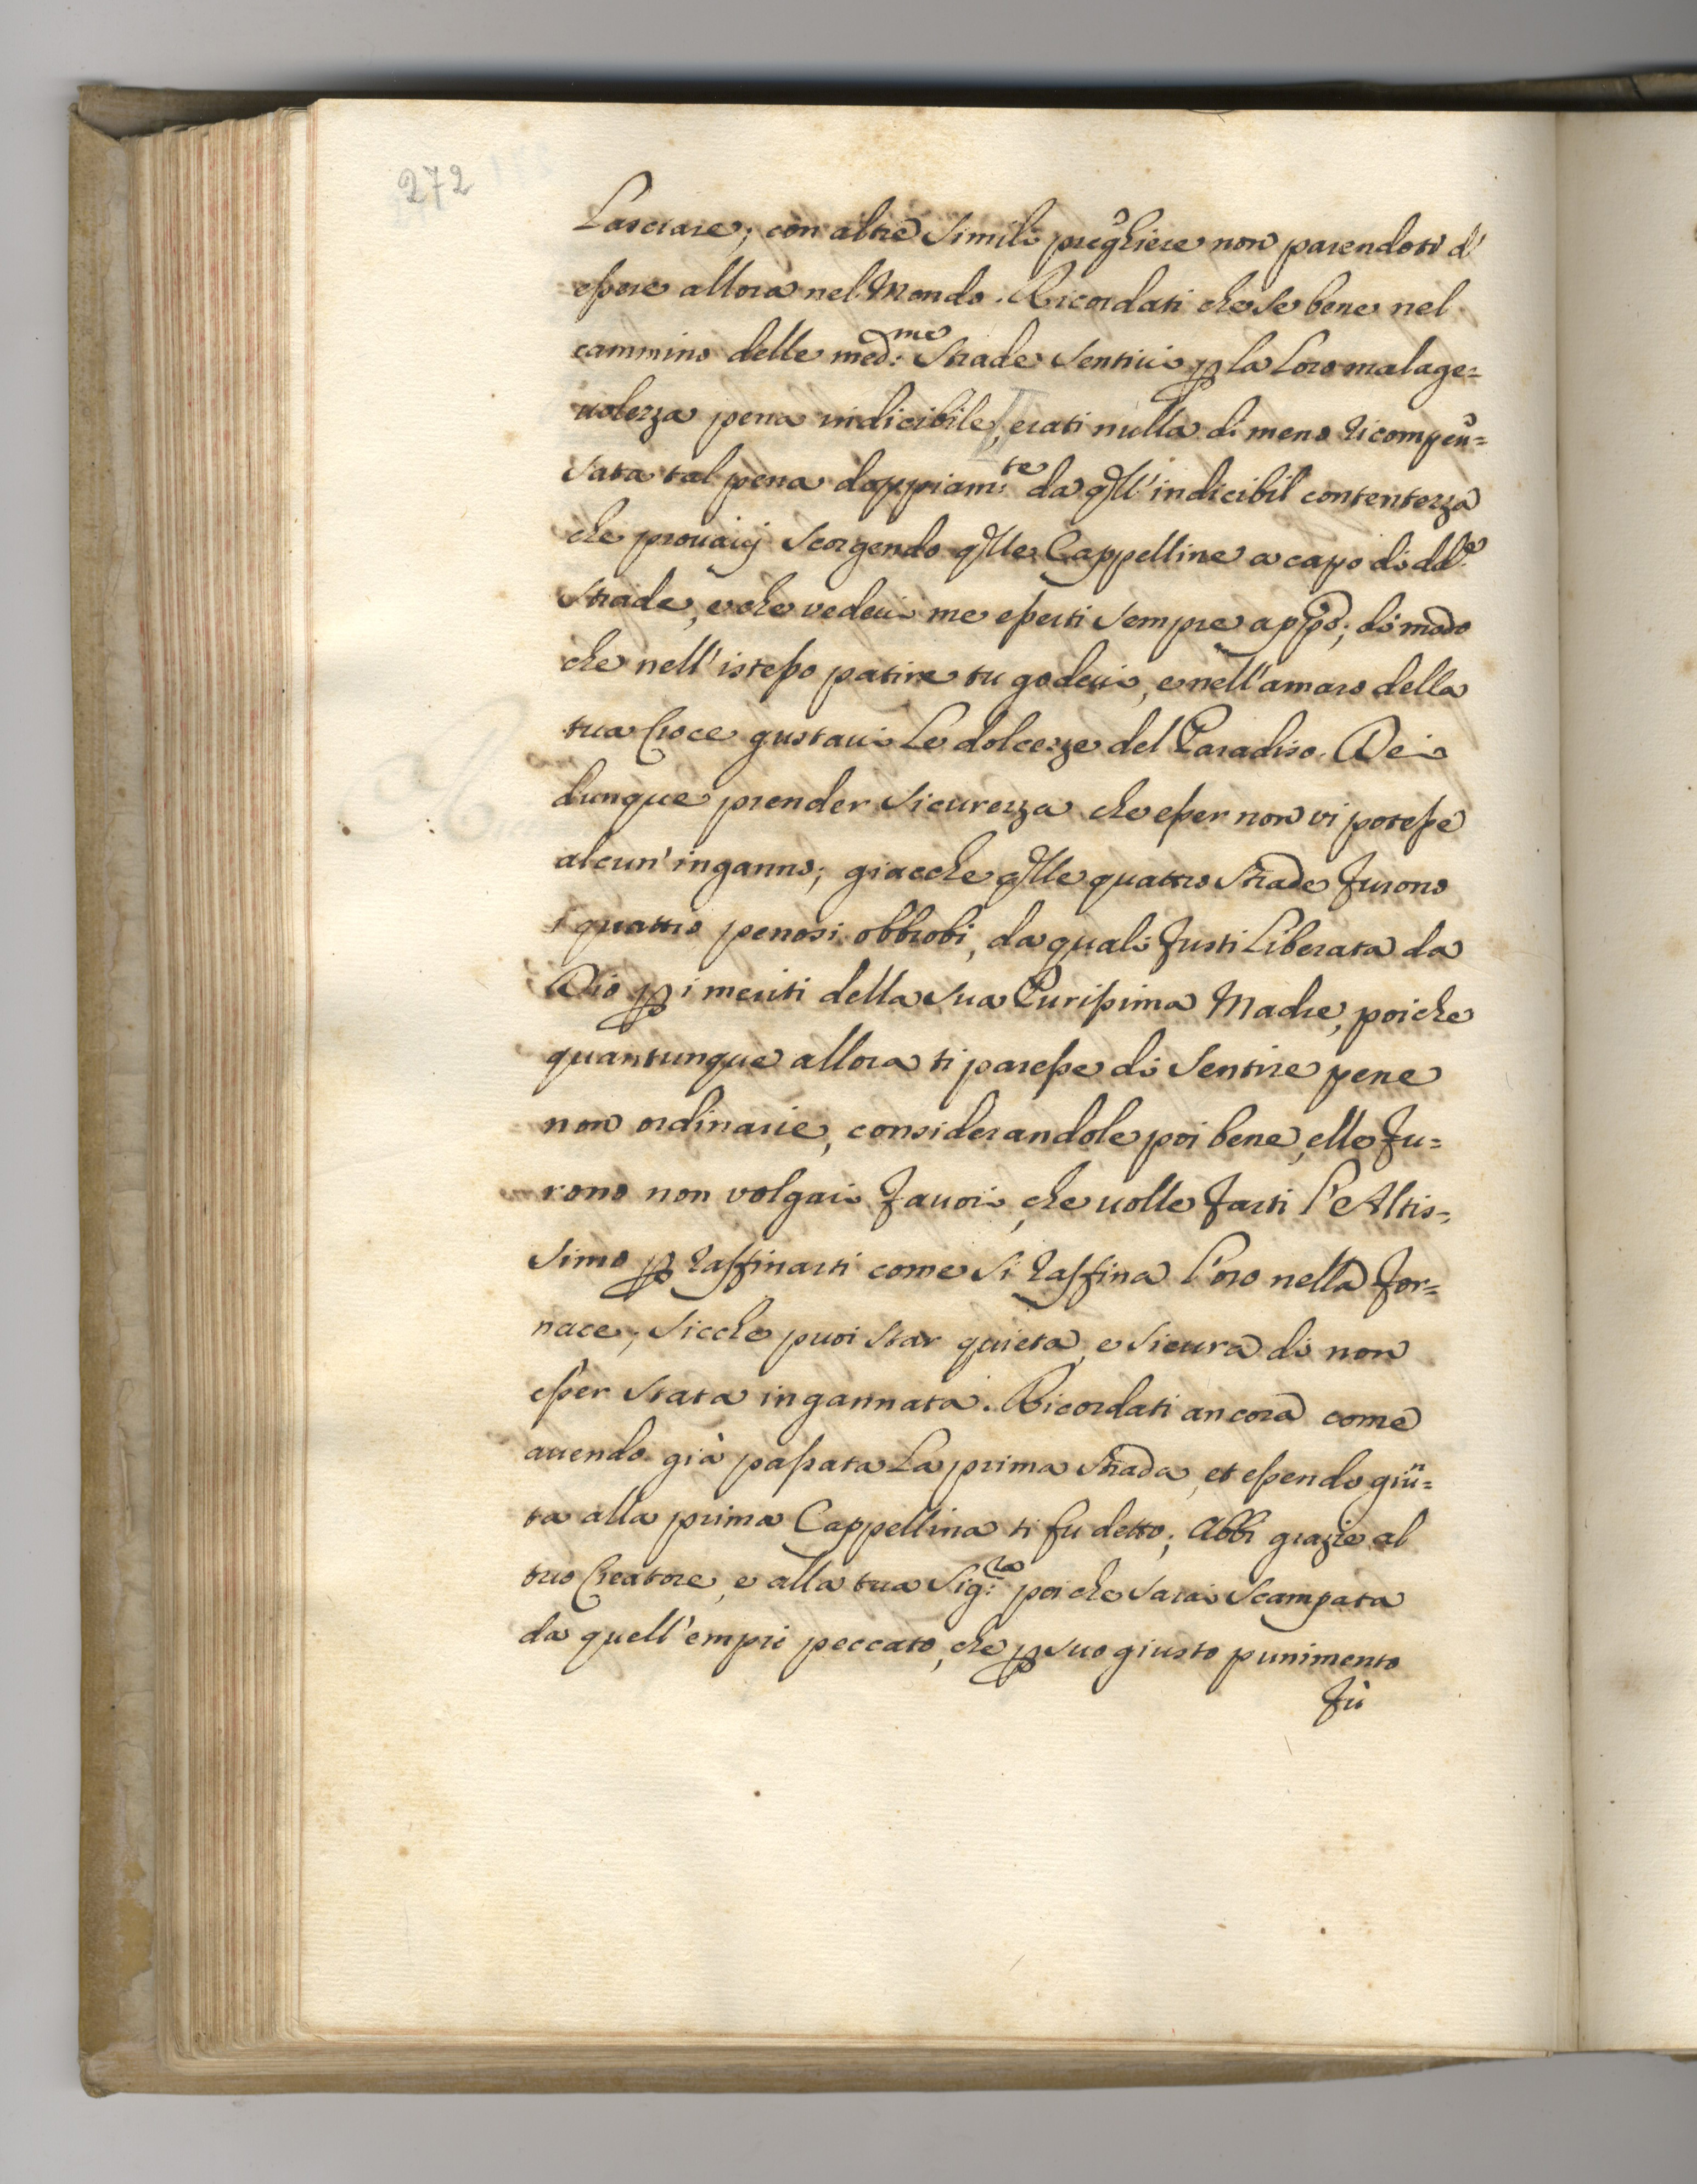 272
Lasciare; con altre simili preghiere non parendoti d'
essere allora nel Mondo. Ricordati che se bene nel
cammino delle med:me strade sentivi p la loro malage=
uolezza pena indicibile, erati nulla di meno ricompeñ=
sata tal pena doppiam:te da qll'indicibil contentezza
che prouaui scorgendo qlle Cappelline a capo di dd.e
strade, e che vedeui me esserti sempre appõ; di modo
che nell'istesso patire tu godeui, e nell'amaro della
tua Croce gustaui Le dolcezze del Paradiso. Dei
dunque prender sicurezza che esser non vi potesse
alcun'inganno; giacche qlle quattro strade furono
i quattro penosi obbrobi, da quali fusti liberata da
Dio p i meriti della sua Purissima Madre, poiche
quantunque allora ti paresse di sentire pene
non ordinarie, considerandole poi bene, elle fu=
rono non volgari fauori, che uolle farti l'Altis=
simo p raffinarti come si raffina l'oro nella for=
nace; sicche puoi star quieta, e sicura di non
esser stata ingannata. Ricordati ancora come
auendo già passata La prima strada, et essendo giũ=
ta alla prima Cappellina ti fu detto; Abbi grazie al
tuo Creatore, e alla tua Sig:ra poiche sarai scampata
da quell'empri peccato, che p suo giusto punimento
fù